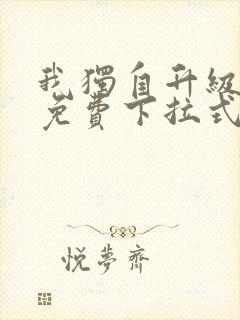 我獨自升級
免費下拉式
悅夢齋